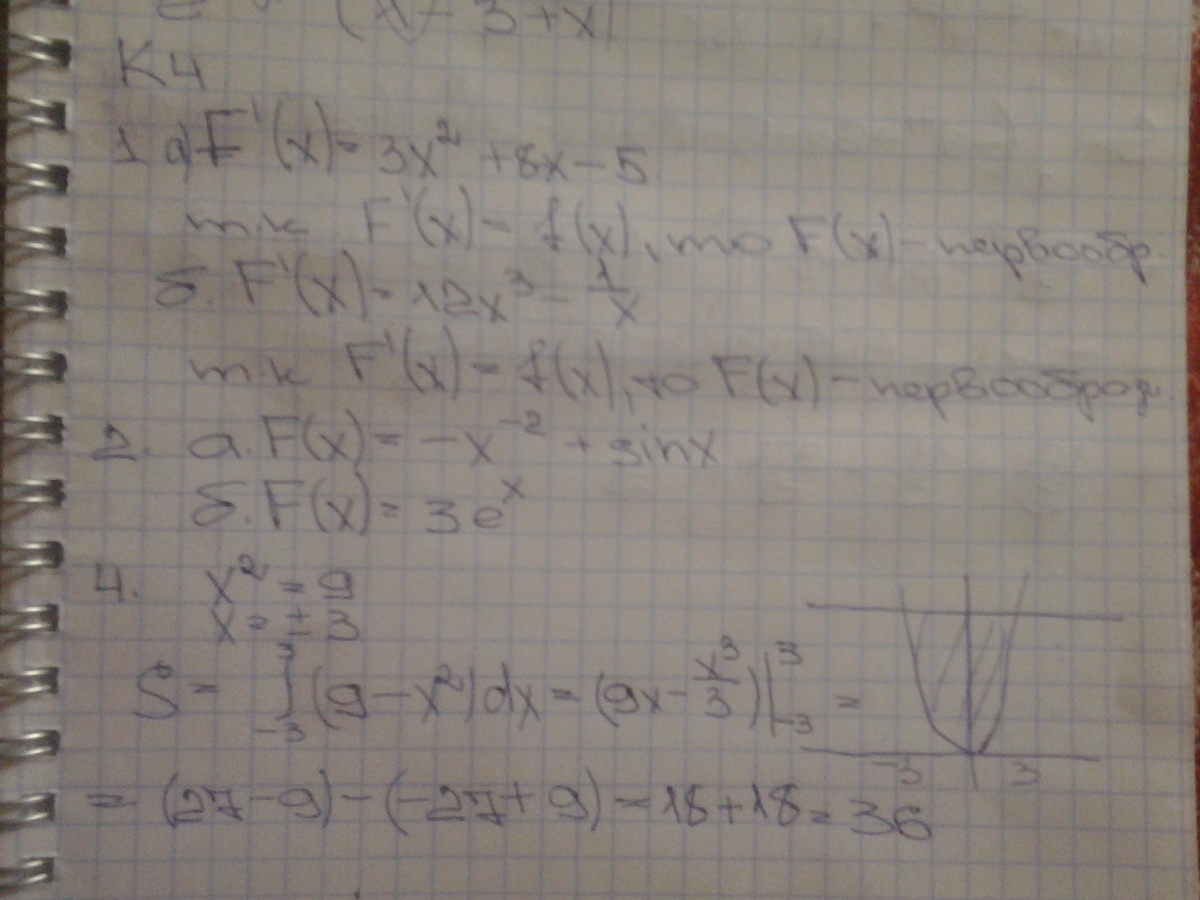 (x - 3 + x)
К4
1 а) F'(x) = 3x² + 8x - 5
т.к F'(x) = f(x), то F(x) - первообр.
б. F'(x) = 12x³ - 1/x
т.к F'(x) = f(x), то F(x) - первообраз.
2. а. F(x) = -x⁻² + sinx
б. F(x) = 3eˣ
4. x² = 9
x = ± 3
S = ∫₋₃³ (9 - x²)dx = (9x - x³/3)|₋₃³ =
-3 3
= (27 - 9) - (-27 + 9) = 18 + 18 = 36